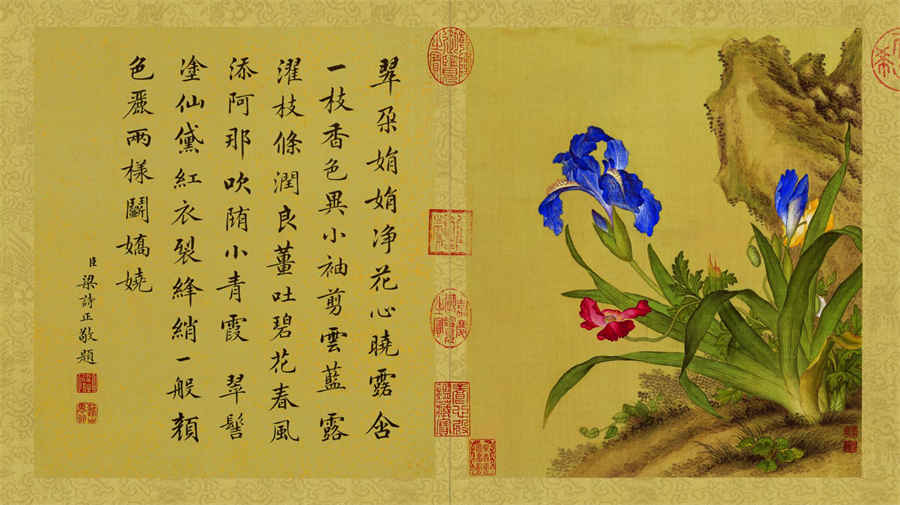 翠朶娟娟净花心曉露含
一枝香色異小袖剪雲藍 露
濯枝條潤良薑吐碧花春風
添阿那吹堕小青霞 翠髻
塗仙黛紅衣裂絳綃一般顏
色麗兩樣鬭嬌嬈
臣梁詩正敬題